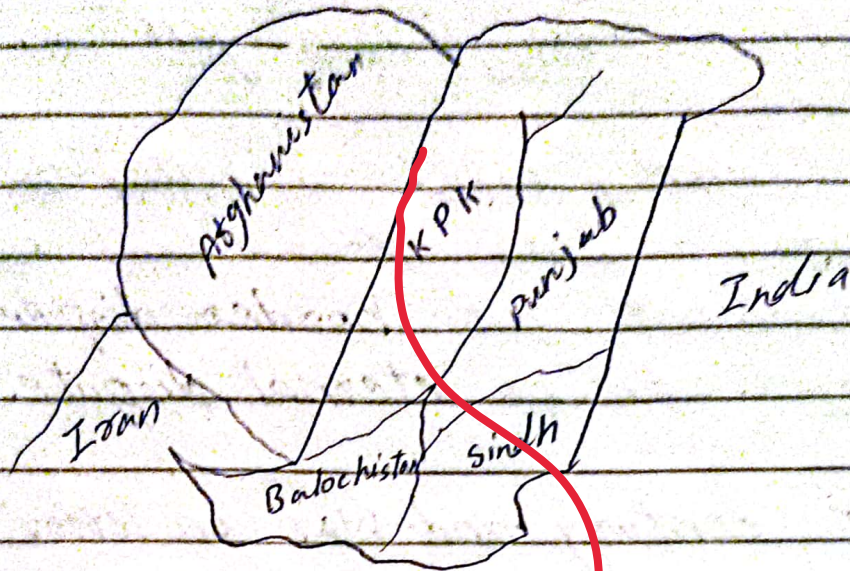 Afghanistan
KPK
Punjab
India
Iran
Balochistan
Sindh